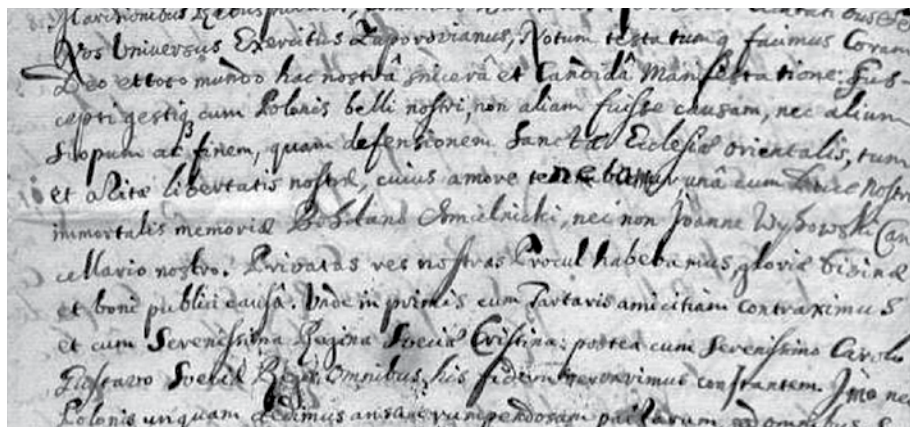 Marchionibus
Nos Universus Exercitus Zaporovianus, Notum testatumq facimus Coram
Deo et toto mundo hac nostrâ sincerâ et Candidâ Manifestatione: Sus-
cepti gestiq cum Polonis belli nostri, non aliam fuisse causam, nec alium
Scopum ac finem, quam defensionem Sanctæ Ecclesiæ Orientalis, tum
et avitæ libertatis nostræ, cuius amore tenebamur unâ cum Duce nostro
immortalis memoriæ Bohdano Chmielnicki, nec non Joanne Wyhowski Can
cellario nostro. Privatas res nostras Procul habebamus, gloriæ divinæ
et boni publici causâ. Unde in primis cum Tartaris amicitiam contraximus
et cum Serenissima Regina Sveciæ Cristina: postea cum Serenissimo Carolo
Gustavo Sveciæ Rege. Omnibus his fidem servavimus constantem. Imo nec
Polonis unquam dedimus ansam rumpendorum pactorum, omnibus